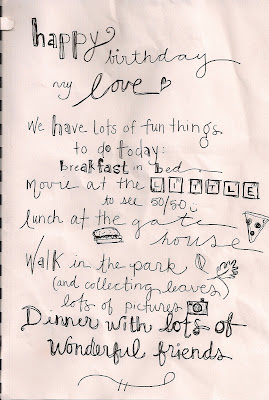 happy
birthday
my love
We have lots of fun things
to do today:
breakfast in bed
Movie at the LITTLE
to see 50/50
lunch at the gate
house
Walk in the park
(and collecting leaves)
lots of pictures
Dinner with lots of
Wonderful friends